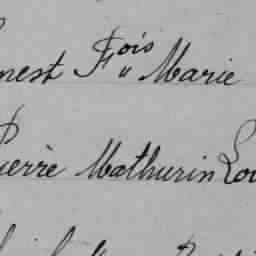 nest Fois Marie
Pierre Mathurin Lou